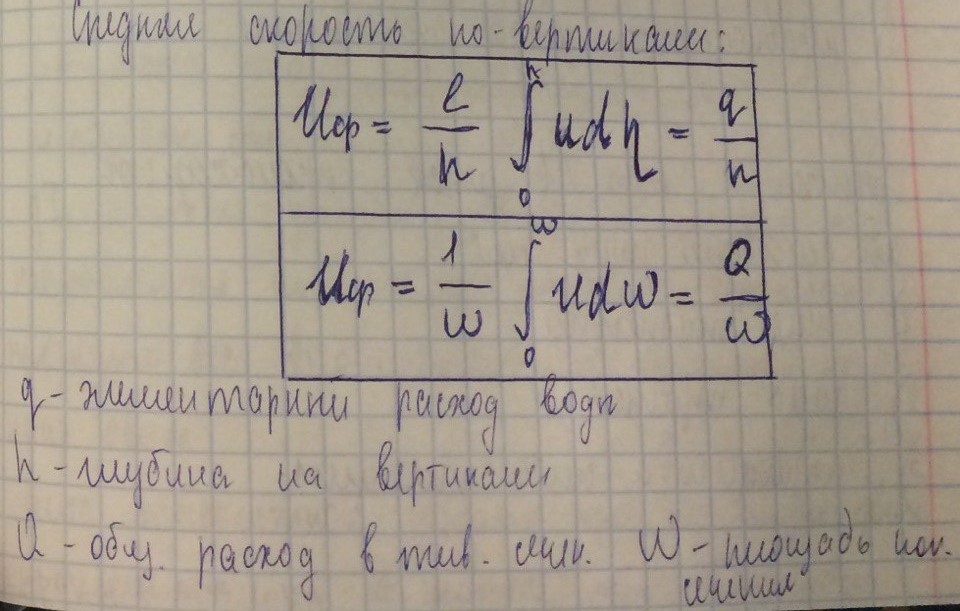 Средняя скорость по-вертикали:
Uср = e/h ∫₀ʰ udh = q/h
Uср = 1/w ∫₀ʷ udw = Q/w
q - элементарный расход воды
h - глубина на вертикали
Q - общ. расход в жив. сечен. W - площадь поп.
сечения